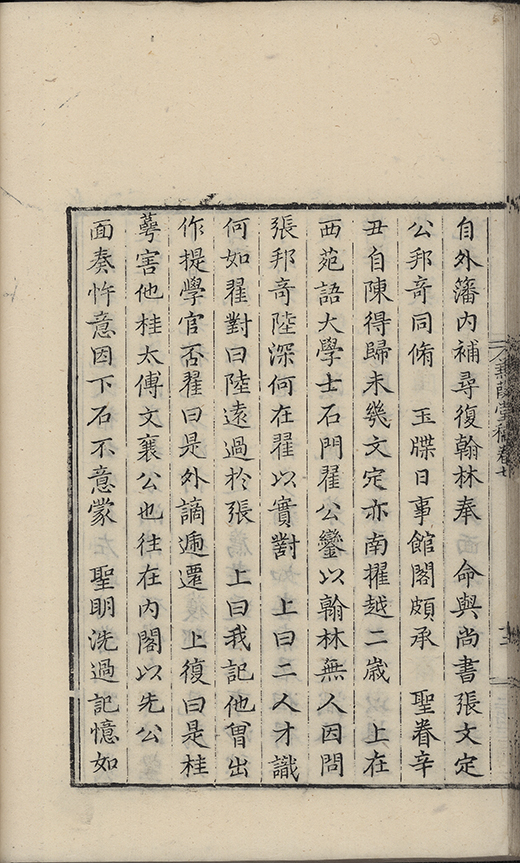 自外藩內補尋復翰林奉　命與尚書張文定
公邦奇同脩　玉牒日事館閣頗承　聖眷辛
丑自陳得歸未幾文定亦南擢越二歲　上在
西苑語大學士石門翟公鑾以翰林無人因問
張邦奇陸深何在翟以實對　上曰二人才識
何如翟對曰陸遠過於張　上曰我記他曾出
作提學官否翟曰是外謫逓遷　上復曰是桂
萼害他桂太傅文襄公也往在內閣以先公
面奏忤意因下石不意蒙　聖明洗過記憶如
葭堂稿卷七